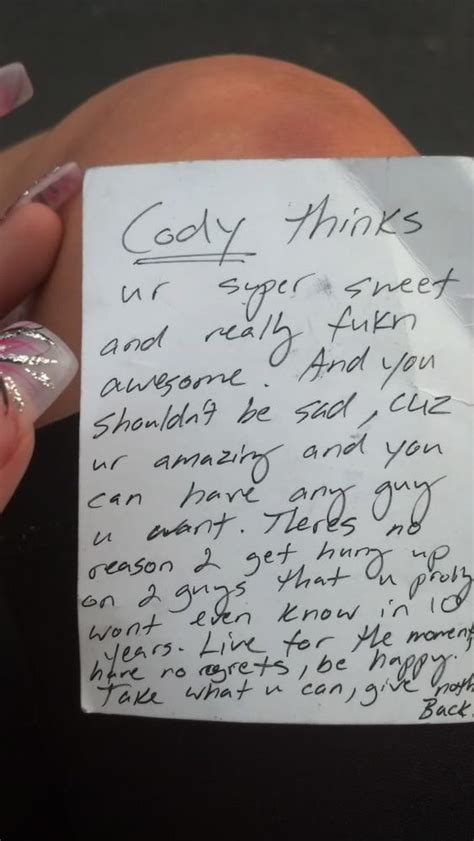 Cody thinks
ur super sweet
and really fukn
awesome. And you
shouldn't be sad, cuz
ur amazing and you
can have any guy
u want. Theres no
reason 2 get hung up
on 2 guys that u probly
wont even know in 10
years. Live for the moment,
have no regrets, be happy.
Take what u can, give noth
Back.